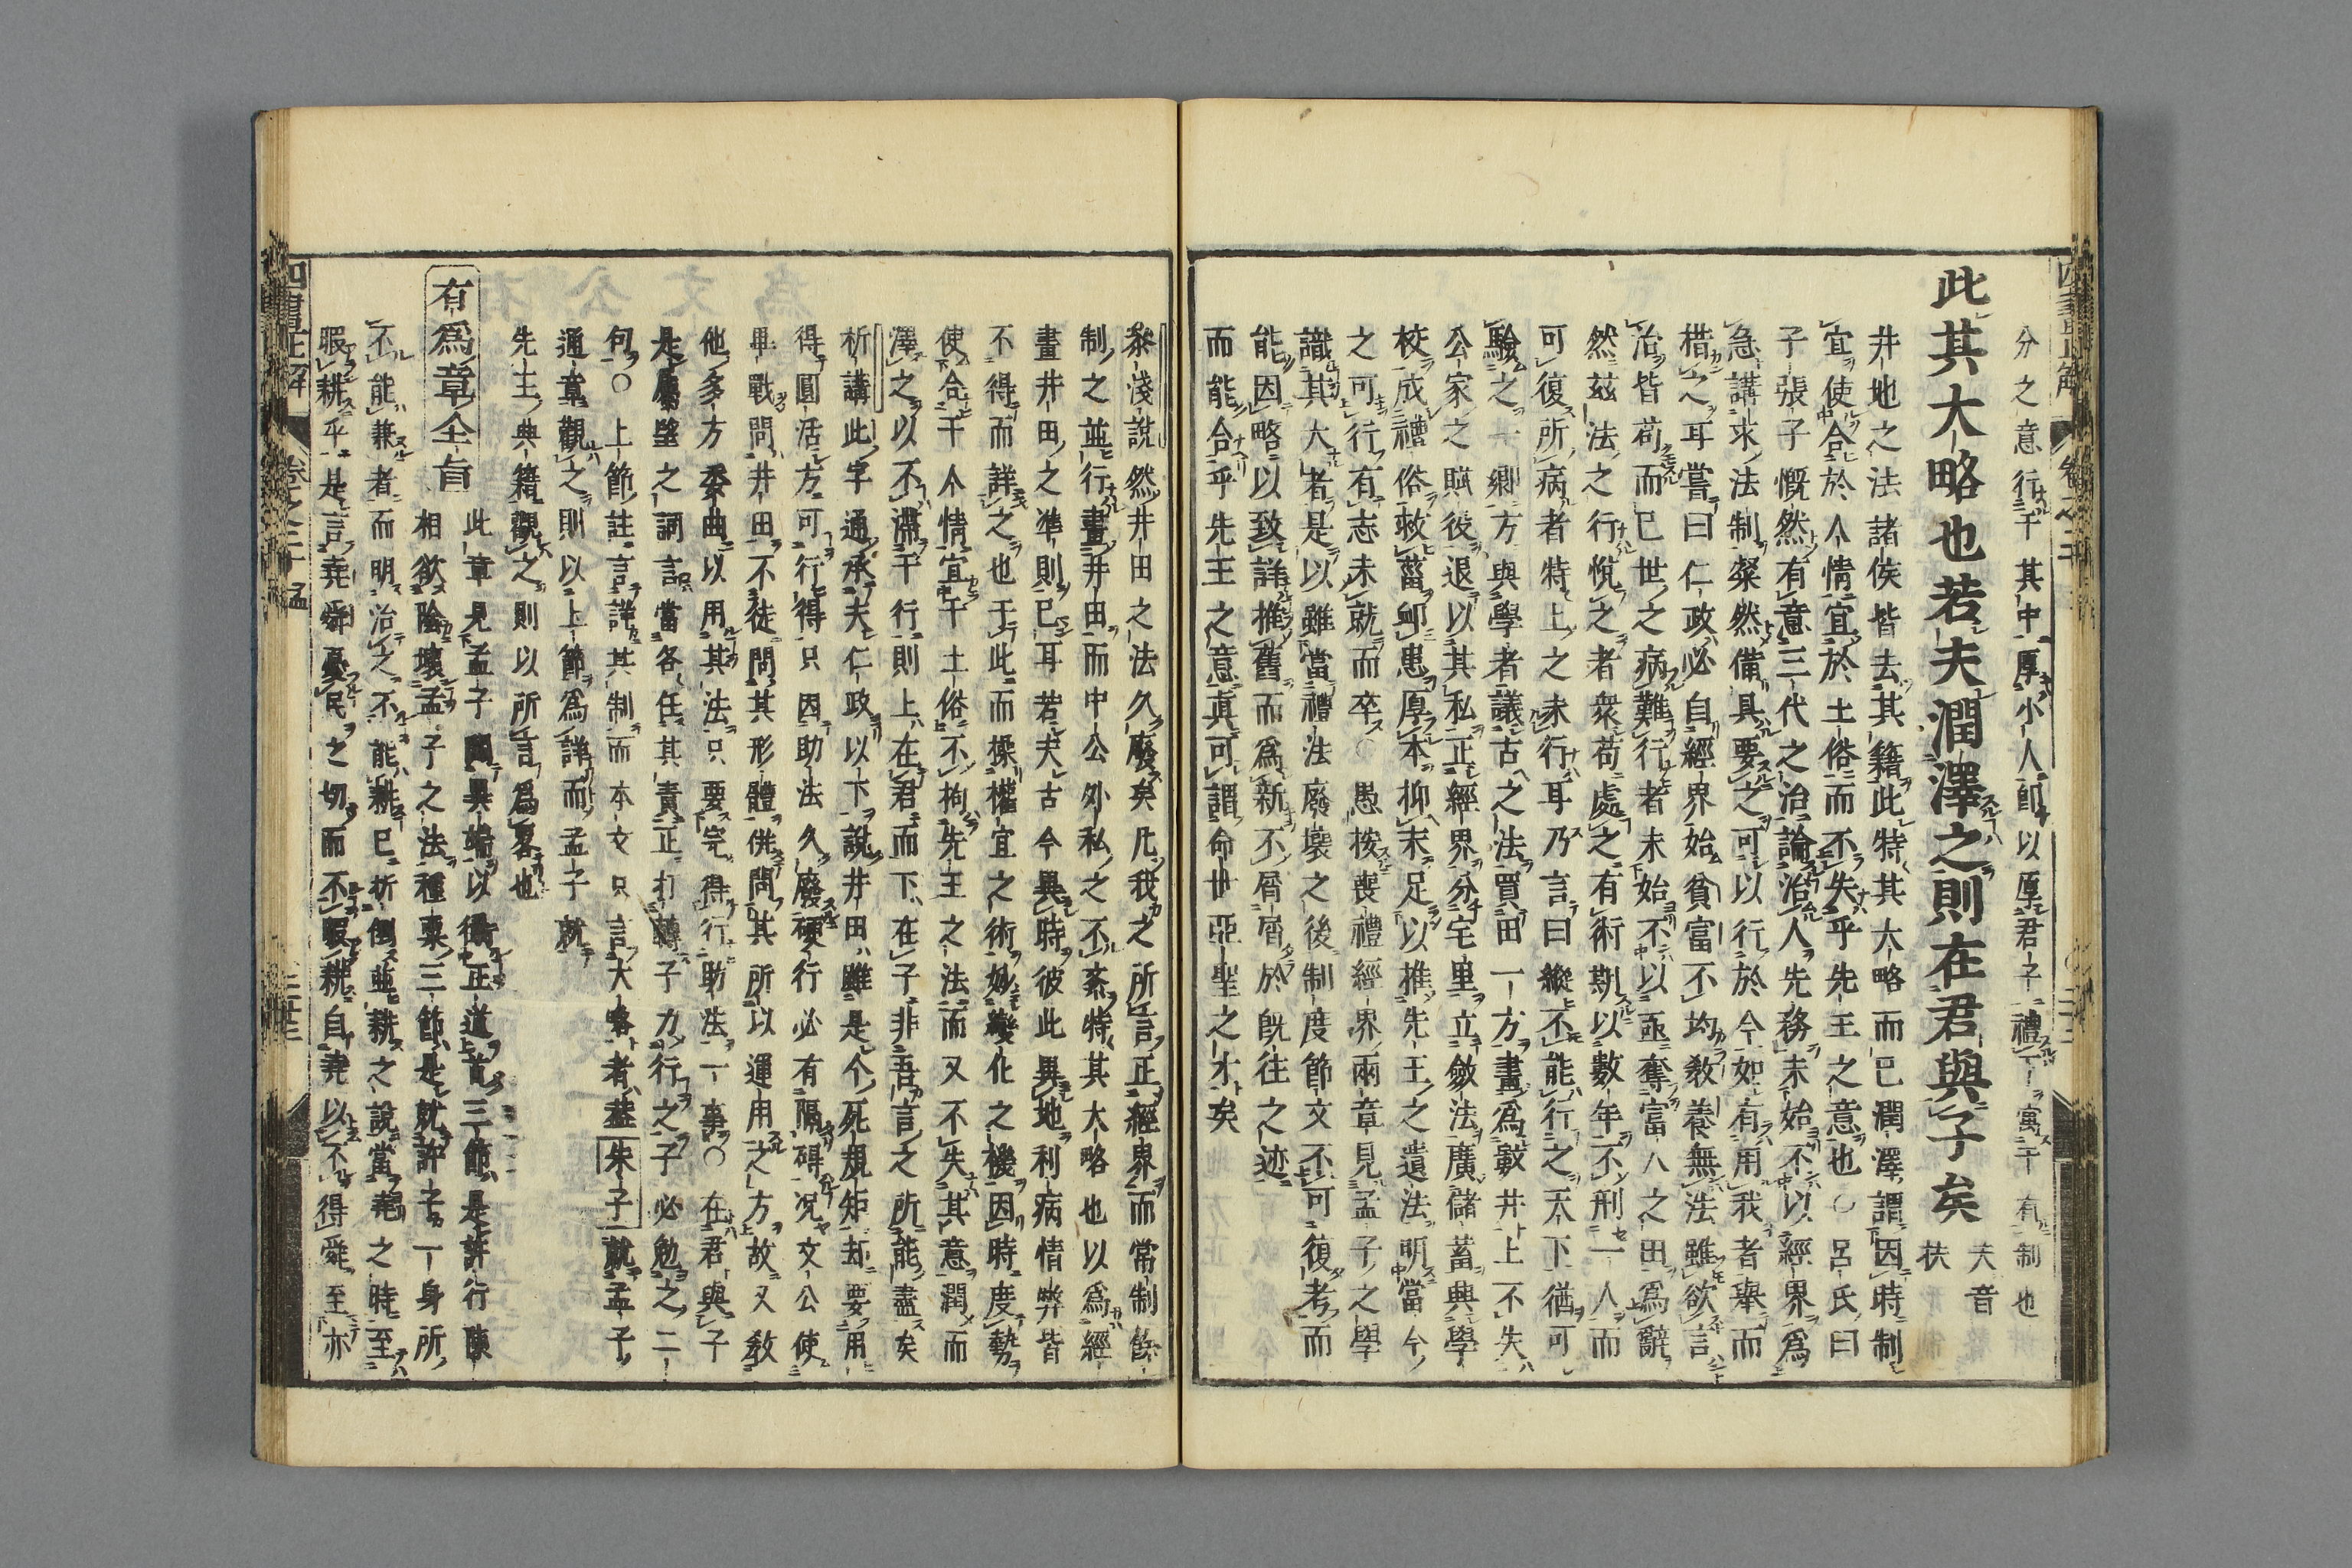 分之意行于其中厚小人卽以厚君子禮下寓于有制也
此其大略也若夫潤澤之則在君與子矣
夫音
扶
井地之法諸侯皆去其籍此特其大略而已潤澤謂因時制
宜使合於人情宜於土俗而不失乎先王之意也○呂氏曰
子張子慨然有意三代之治論治人先務未始不以經界爲
急講求法制粲然備具要之可以行於今如有用我者舉而
措之耳嘗曰仁政必自經界始貧富不均敎養無法雖欲言
治皆苟而已世之病難行者未始不以亟奪富人之田爲辭
然茲法之行悅之者衆苟處之有術期以數年不刑一人而
可復所病者特上之未行耳乃言曰縱不能行之天下猶可
驗之一鄕方與學者議古之法買田一方畫爲數井上不失
公家之賦役退以其私正經界分宅里立斂法廣儲蓄興學
校成禮俗救菑卹患厚本抑末足以推先王之遺法明當今
之可行有志未就而卒○愚按喪禮經界兩章見孟子之學
識其大者是以雖當禮法廢壞之後制度節文不可復考而
能因略以致詳推舊而爲新不屑屑於旣往之迹
而能合乎先王之意眞可謂命世亞聖之才矣
叅淺說然井田之法久廢矣凡我之所言正經界而常制餘
制之並行畫井田而中公外私之不紊特其大略也以爲經
畫井田之準則已耳若夫古今異時彼此異地利病情弊皆
不得而詳之也于此而操權宜之術妙變化之機因時度勢
使合于人情宜于土俗不拘先王之法而又不失其意潤而
澤之以不滯于行則上在君而下在子非吾言之所能盡矣
析講此字通承夫仁政以下說井田雖是个死規矩却要用
得圓活方可行得只因助法久廢硬行必有隔碍况文公使
畢戰問井田不徒問其形體併問其所以運用之方故又敎
他多方委曲以用其法只要完得行助法一事○在君與子
是屬望之詞言當各任其責正打轉子力行之子必勉之二
句○上節註言詳其制而本文只言大略者葢朱子就孟子
通章觀之則以上節爲詳而孟子就
先王典籍觀之則以所言爲畧也
有爲章全旨
此章見孟子闢異端以衞正道首三節是許行陳
相欲陰壞孟子之法種粟三節是就許子一身所
不能兼者而明治之不能耕已折倒並耕之說當堯之時至
暇耕乎是言堯舜憂民之切而不暇耕自堯以不得舜至亦
四書正解 卷之三十 孟 三十三